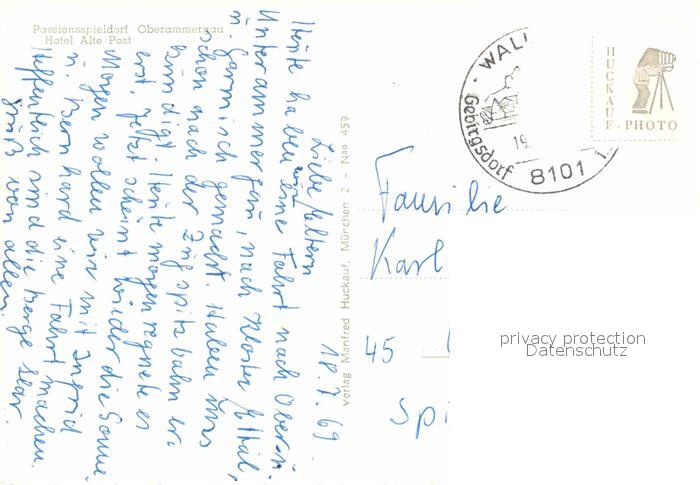 Passionsspieldorf Oberammergau
Hotel Alte Post
18.7.69
Liebe Eltern
Heute haben wir eine Fahrt nach Oberu.
Unterammergau, nach Kloster Ettal,
u. Garmisch gemacht. Haben uns
schon nach der Zugspitzbahn er-
kundigt. Heute morgen regnete es
erst, jetzt scheint wieder die Sonne.
Morgen wollen wir mit Ingrid
u. Bernhard eine Fahrt machen.
Hoffentlich sind die Berge klar.
Gruß von allen.
Verlag Manfred Huckauf, München 2 - Nao 459
WALL
Gebirgsdorf
19.
8101
HUCKAUF - PHOTO
Familie
Karl
45
Spi
privacy protection
Datenschutz